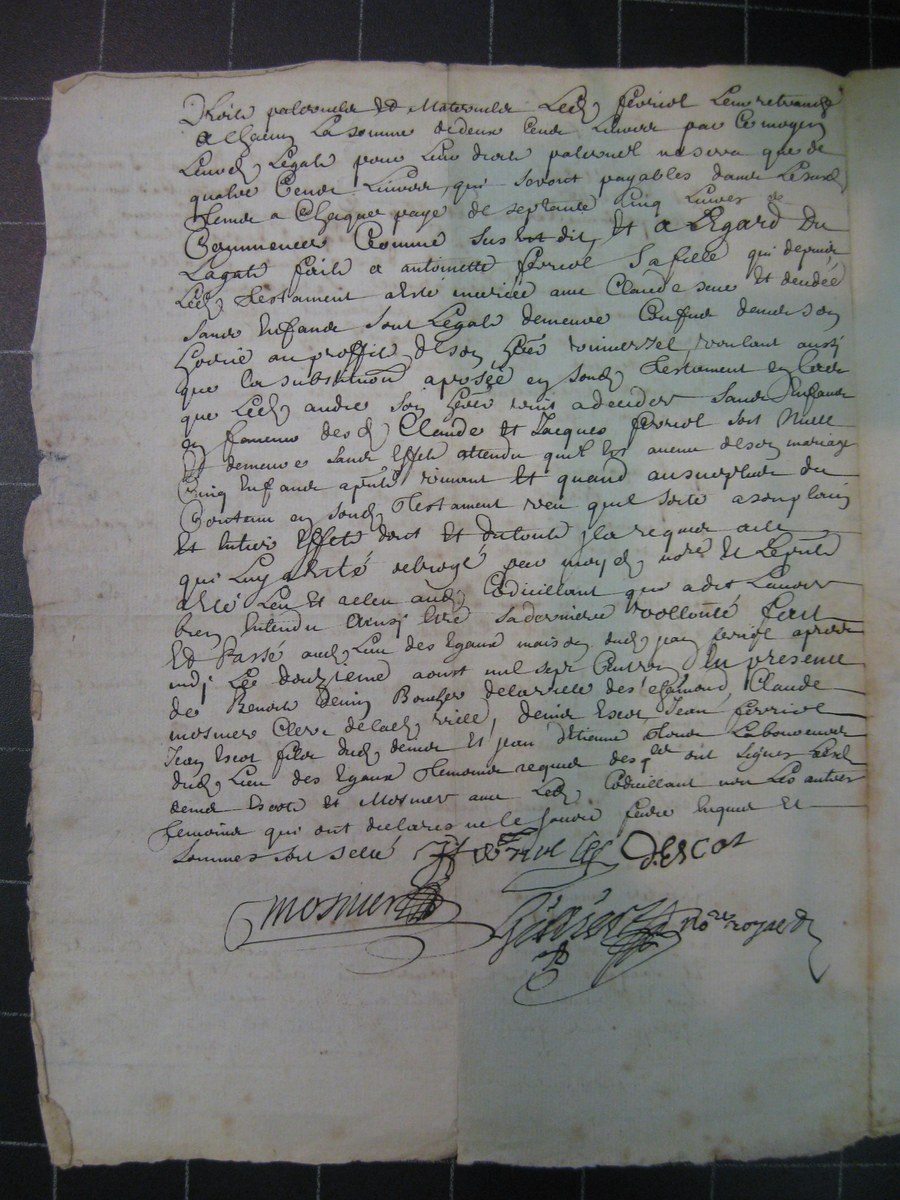 Droits paternels et Maternels Ledt fériol Leur retranche
a Chacun La somme de deux Cent Livres par Ce moyen
Leurdt Légats pour Leur droits paternel ne sera que de
quatre Cents Livres, qui seront payables dans Lesusdt
terme a Chaque paye de septante Cinq Livres
Commencer Comme sus est dit, Et a L'Egard Du
Lagat faite a antoinette fériol sa fille qui depuis
Ledt testament a Esté mariée avec Claude et décédée
sans Enfants son Légats demeure Confus dans son
hoirie au proffit de son héritier universel, voulant aussy
que la substitution aposée en sondt testament en Cas
que Ledt andre son héritier vint a decéder sans Enfants
en faveur desdt Claude Et Jacques fériol soit Nulle
Et demeure sans Effets attendu quil Est avenu de son mariage
Cinq Enfants vivant Et quand au surplus du
Contenu en sondt testament veu quil sorte a son plain
Et Entier Effets dont Et du tout Il a requis acte
qui Luy a Esté octroyé par moydt notre Et Après
a Esté Leu Et releu audt Codicillant qui a dit L'avoir
bien Entendu Ainsy Estre sa derniere vollonté fait
Et Passé audt Lieu des Egaux maison dudt jean fériol apres
midy Le douzième aoust mil sept Cent En présence
de Benoit Denis Boucher de la ville de st chamond, Claude
mosnier Clerc de ladt ville, denis Escot Jean fériol
Jean Escot fils dudt denis Et jean d'Etienne Laboureurs
dudt Lieu des Egaux témoins requis desqls ont signés Lesdt
denis Escots Et Mosnier avec Ledt Codicillant non Les autres
témoins qui ont déclarés ne le savoir faire Enquis Et
sommés
fériol D. EsCot
mosnier
Nore royal